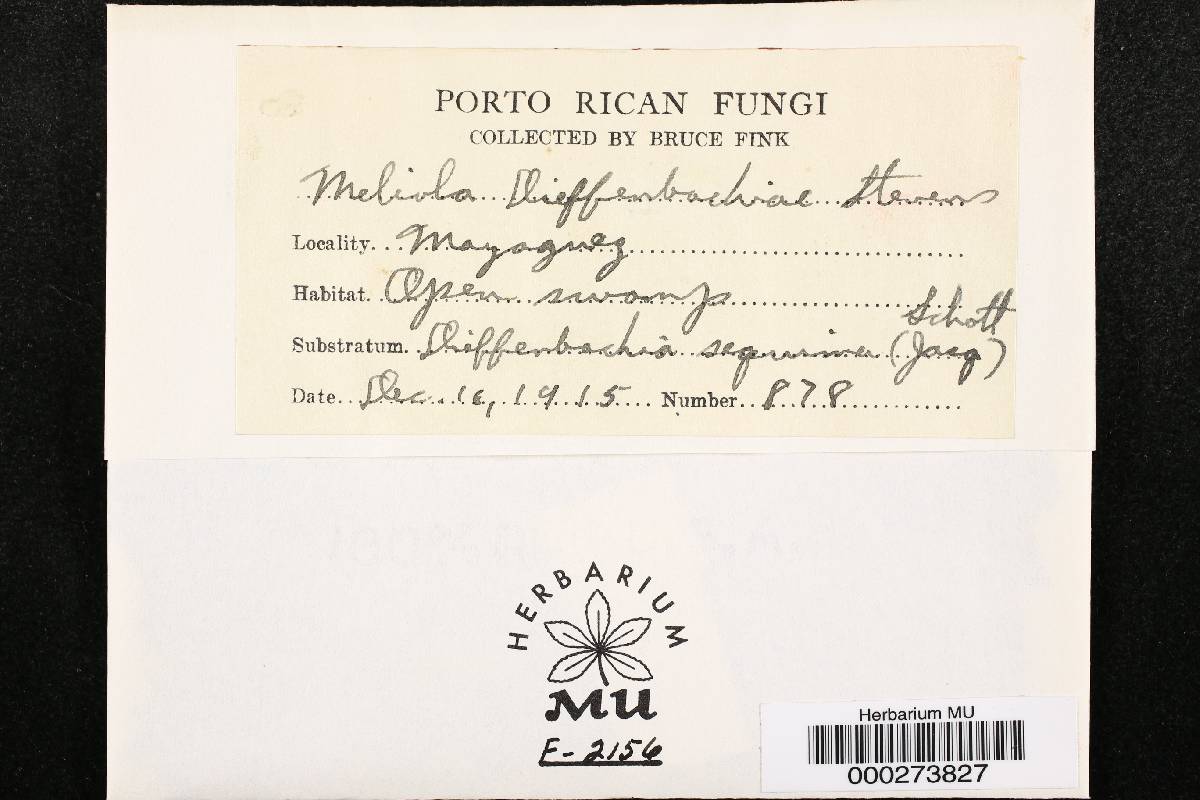 PORTO RICAN FUNGI
COLLECTED BY BRUCE FINK
Meliola Dieffenbachiae Stevens
Locality Mayaguez
Habitat Open swamp
Schott
Substratum Dieffenbachia seguina (Jacq)
Date Dec 16, 1915 Number 878
HERBARIUM
MU
F-2156
Herbarium MU
000273827